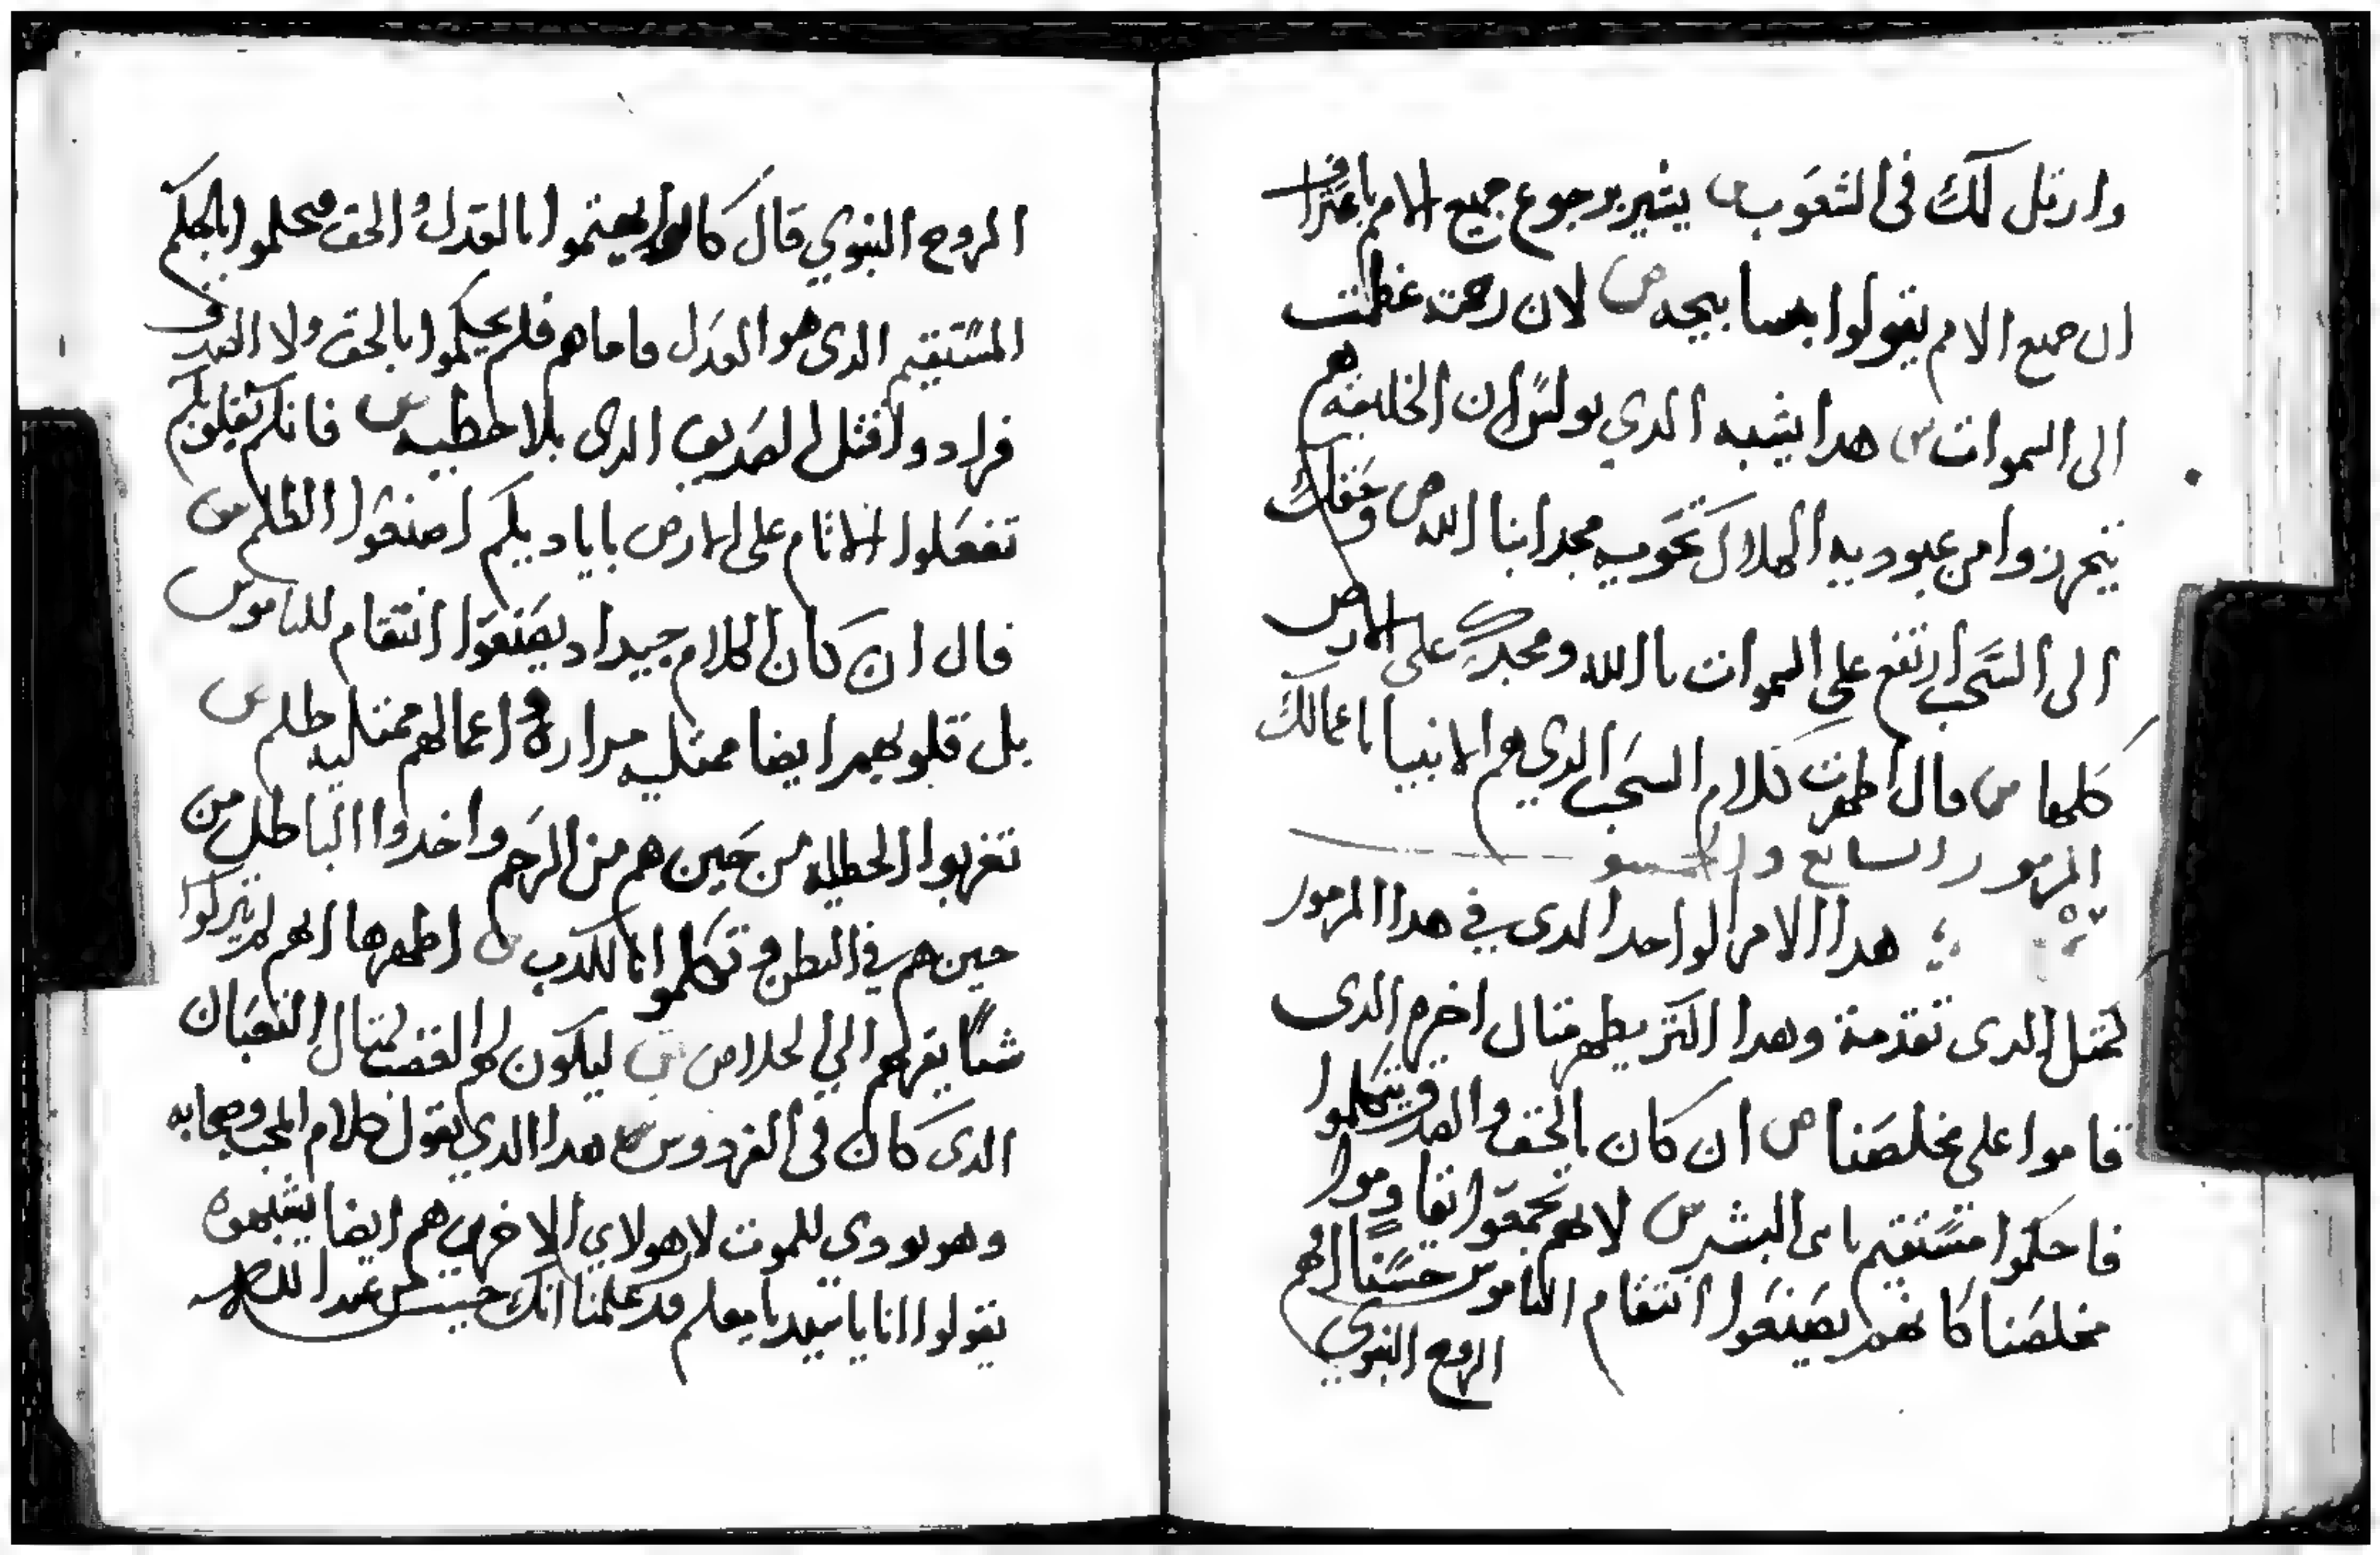 وارتل لك فى الشعوب ص يشير برجوع جميع الامم باعتراف
ان جميع الامم يقولوا بمجده ص لان رحمته عظمت
الى السموات س هدا يشبه الدي بولس ان الخليقه هم
يتحرروا من عبوديه الهلاك نحو مجد ابنا الله ص وحقك
الى السحب ارتفع على السموات يا الله ومجدك على الارض
كلها ص قال اظهرت كلام السحب الدي هم الانبيا باعمالك
المزمور السابع والخمسو
٥٧ هدا الامر الواحد الدى في هدا المزمور
كمثل الدى تقدمة وهدا اكثر يظهر متال اخرهم الدى
قاموا على مخلصنا ص ان كان بالحق والصدق تتكلموا
فاحكموا مستقيم يا بنى البشر س لانهم تجمعوا تقاوموا
مخلصنا كانهم يصنعوا انتقام الناموس حسنا الهم
الروح النبوي
الروح النبوي قال كانوا بالعدل والحق تحكموا بالحكم
المستقيم الدى هو العدل فاماهم فلم يحكموا بالحق ولا الصدق
فرادوا قتل الصديق الدى بلا خطيه س فانكم بقلوبكم
تفعلوا الاثام على الارض باياديكم اصنعوا الظلم س
قال ان كان الكلام جيدا ديصنعوا انتقام للناموس
بل قلوبهم ايضا ممتليه مراره و اعمالهم ممتليه ظلم س
تغربوا الخطاه من حين هم من الرحم واخدوا الباطل من
حين هم في البطن و تكلموا بالكدب س اظهرها انهم لم يتركوا
شيا يقربهم الي الخلاص س ليكون لهم الغضب كمتال التعبان
الدى كان فى الفردوس هدا الدي يقول كلام المحب وصحابه
وهو يودى للموت لا هولاي الاخرين هم ايضا يشبهوه
يقولوا انا يا سيد يا معلم قد علمنا انك جيت من عند الله